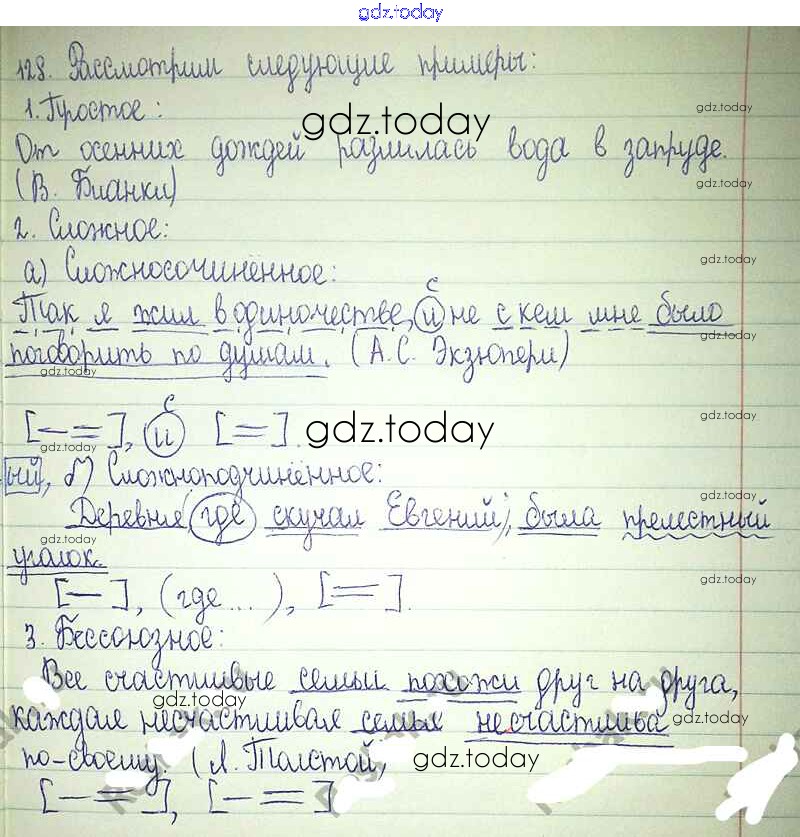 gdz.today
128. Рассмотрим следующие примеры:
1. Простое:
gdz.today
gdz.today
От осенних дождей разлилась вода в запруде.
gdz.today
(В. Бианки)
2. Сложное:
gdz.today
а) Сложносочинённое:
с
Так я жил в одиночестве, и не с кем мне было
gdz.today
поговорить по душам. (А.С. Экзюпери)
gdz.today
с
gdz.today
[— =], и [=].
gdz.today
gdz.today
ый, б) Сложноподчинённое:
gdz.today
Деревня (где скучал Евгений), была прелестный
gdz.today
уголок.
[—], (где...), [=].
gdz.today
3. Бессоюзное:
Все счастливые семьи похожи друг на друга,
gdz.today
каждая несчастливая семья несчастлива
gdz.today
по-своему. (Л. Толстой,
gdz.today
[— =], [— =]